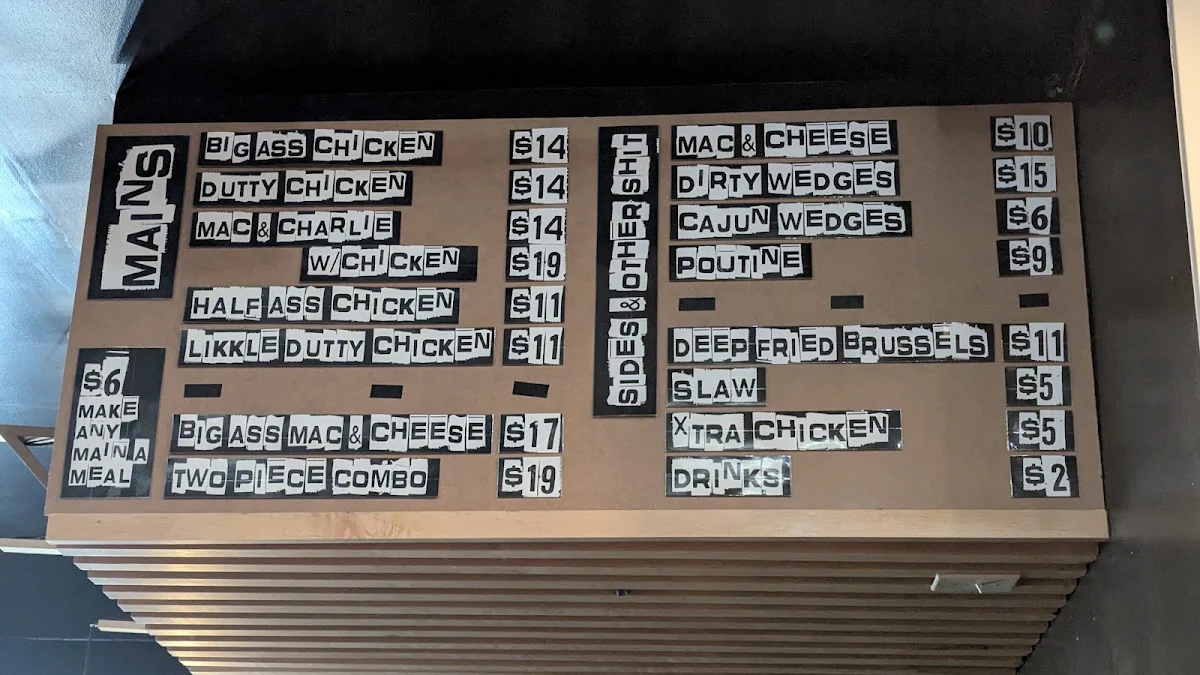 MAINS
BIG ASS CHICKEN $14
DUTTY CHICKEN $14
MAC & CHARLIE $14
W/CHICKEN $19
HALF ASS CHICKEN $11
LIKKLE DUTTY CHICKEN $11
BIG ASS MAC & CHEESE $17
TWO PIECE COMBO $19
$6
MAKE
ANY
MAIN A
MEAL
SIDES & OTHER SHIT
MAC & CHEESE $10
DIRTY WEDGES $15
CAJUN WEDGES $6
POUTINE $9
DEEP FRIED BRUSSELS $11
SLAW $5
XTRA CHICKEN $5
DRINKS $2